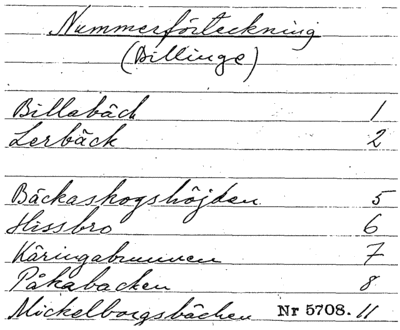 Nummerförteckning
(Billinge)
Billabäck 1
Lerbäck 2
Bäckaskogshöjden 5
Hissbro 6
Käringabrunnen 7
Påkabacken 8
Mickelborgsbäcken Nr 5708. 11